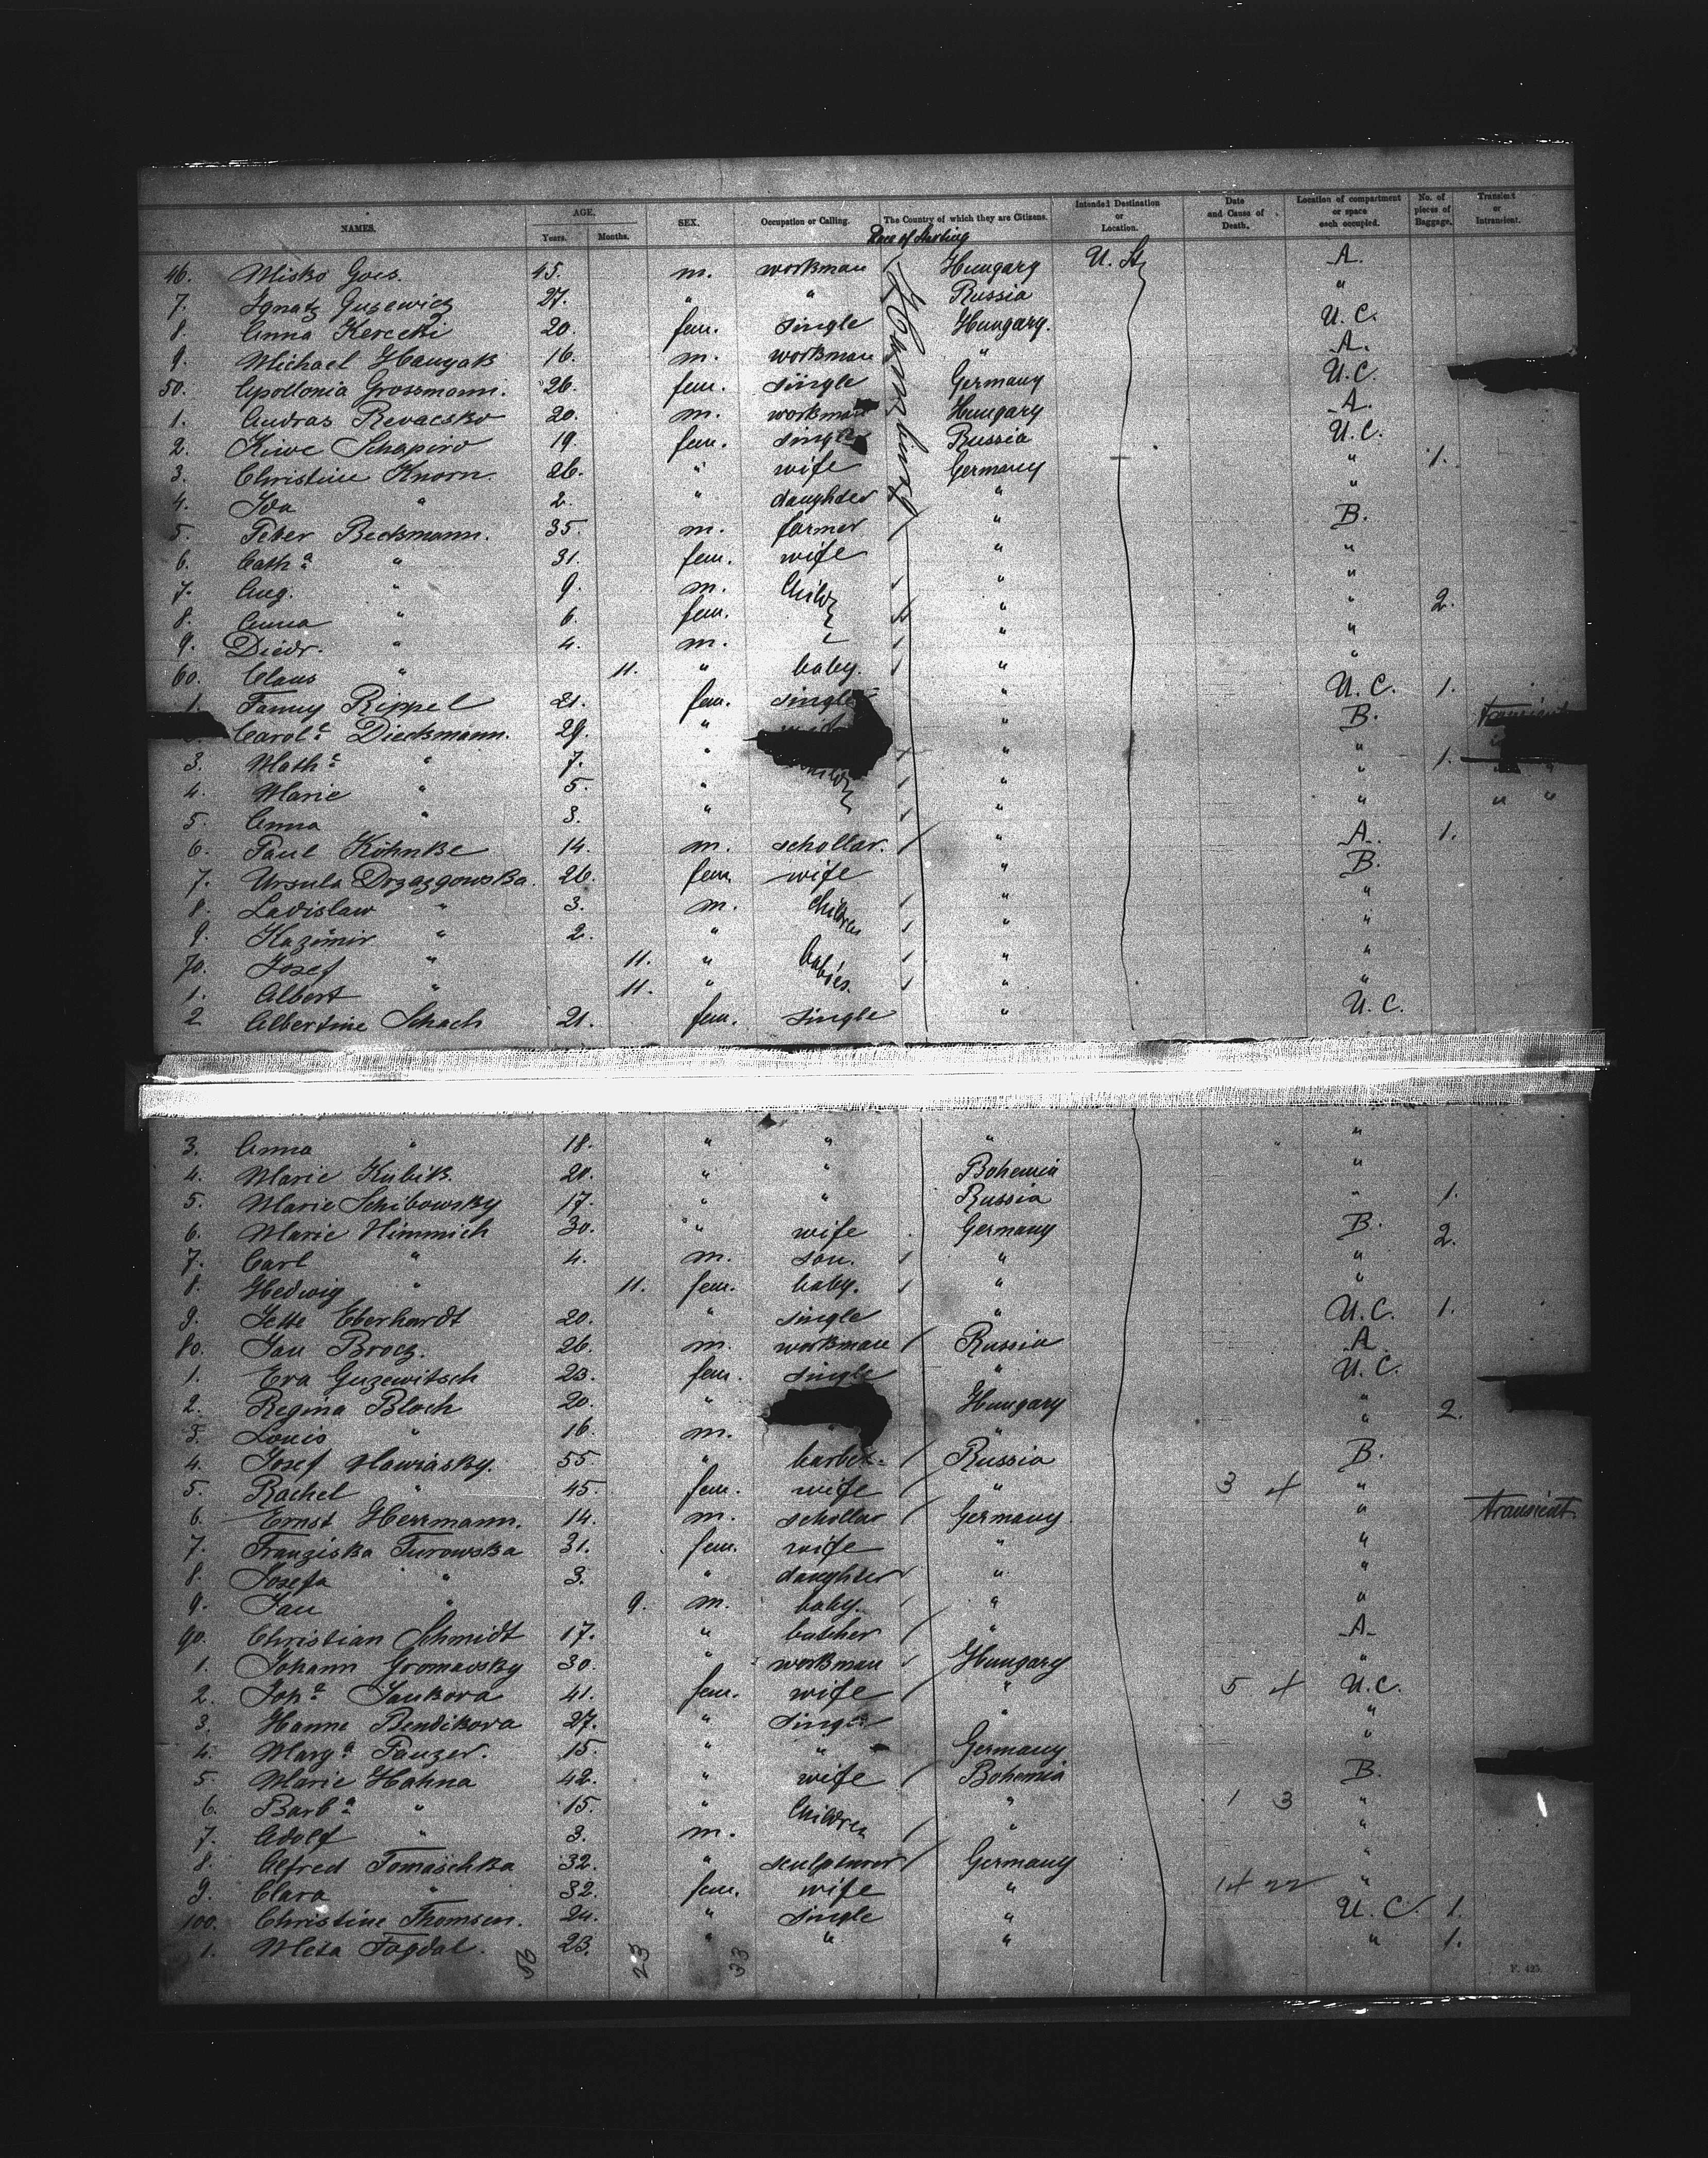 NAMES. AGE. Years. Months. SEX. Occupation or Calling. The Country of which they are Citizens. Intended Destination or Location. Date and Cause of Death. Location of compartment or space each occupied. No. of pieces of Baggage. Transient or Intransient.
Place of Starting
Hamburg
46. Misko Goes. 45. m. workman Hungary U. St. A.
7. Ignatz Guzewicz 27. " " Russia "
8. Anna Kerecki 20. fem. single Hungary. U. C.
9. Michael Hanyak 16. m. workman " A.
50. Apollonia Grossmann. 26. fem. single Germany U. C.
1. Andras Revacsko 20. m. workman Hungary A.
2. Kiwe Schapiro 19. fem. single Russia U. C.
3. Christine Knorn. 26. " wife Germany " 1.
4. Ida " 2. " daughter " "
5. Peter Beckmann. 35. m. farmer " B.
6. Cath.a " 31. fem. wife " "
7. Aug. " 9. m. Childr. " "
8. Anna " 6. fem. " " 2.
9. Diedr. " 4. m. " "
60. Claus " 11. " baby. " "
1. Fanny Rippel 21. fem. single " U. C. 1.
Carol.e Dieckmann. 29. " " B. transient
3. Math.e " 7. " " " 1.
4. Marie " 5. " " " " "
5. Anna " 3. " " "
6. Paul Köhnke 14. m. schollar. " A. 1.
7. Ursula Drzazgowska. 26. fem. wife " B.
8. Ladislaw " 3. m. Children " "
9. Kazimir " 2. " " "
70. Josef " 11. " babies. " "
1. Albert " 11. " " "
2 Albertine Schach 21. fem. single " U. C.
3. Anna " 18. " " " "
4. Marie Kubik. 20. " " Bohemia "
5. Marie Schibowsky 17. " " Russia " 1.
6. Marie Himmich 30. " wife Germany B. 2.
7. Carl " 4. m. son. " "
8. Hedwig " 11. fem. baby. " "
9. Jette Eberhardt 20. " single " U. C. 1.
80. Jan Brocz. 26. m. workman Russia A
1. Eva Guzewitsch 23. fem. single " U. C.
2. Regina Bloch 20. " Hungary " 2.
3. Louis " 16. m. " " "
4. Josef Nawiasky. 55. " barber. Russia B.
5. Rachel " 45. fem. wife " 3 4 "
6. Ernst Herrmann. 14. m. schollar Germany " transient
7. Franziska Turowska 31. fem. wife " "
8. Josefa " 3. " daughter " "
9. Jan " 9. m. baby. " "
90. Christian Schmidt 17. " butcher " A.
1. Johann Gromavsky 30. " workman Hungary "
2. Joh.a Jankova 41. fem. wife " 5 4 U. C.
3. Hanne Bendikova 27. " single " "
4. Marg.a Panzer. 15. " " Germany "
5. Marie Hahna 42. " wife Bohemia B.
6. Barb.a " 15. " Children " 1 3 "
7. Adolf " 3. m. " "
8. Alfred Tomaschka 32. " sculpturer Germany "
9. Clara " 32. fem. wife " "
100. Christine Thomsen. 24. " single " U. C. 1.
1. Meta Fogdal. 23. " " " " 1.
56 23 33
F. 425.